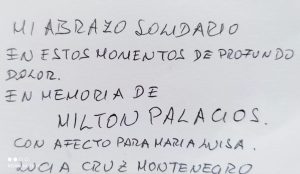 MI ABRAZO SOLIDARIO
EN ESTOS MOMENTOS DE PROFUNDO
DOLOR.
EN MEMORIA DE
MILTON PALACIOS.
CON AFECTO PARA MARIA LUISA.
LUCIA CRUZ MONTENEGRO